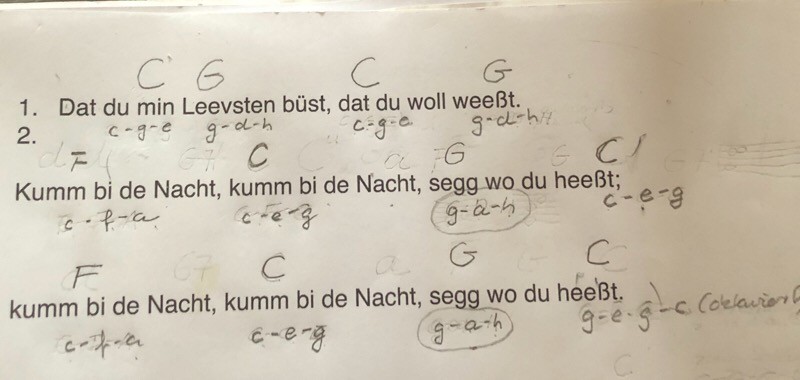 C G C G
1. Dat du min Leevsten büst, dat du woll weeßt.
2.
c-g-e g-d-h c-g-e g-d-h
F C G C
Kumm bi de Nacht, kumm bi de Nacht, segg wo du heeßt;
c-f-a c-e-g g-a-h c-e-g
F C G C
kumm bi de Nacht, kumm bi de Nacht, segg wo du heeßt.
c-f-a c-e-g g-a-h g-e-g-c